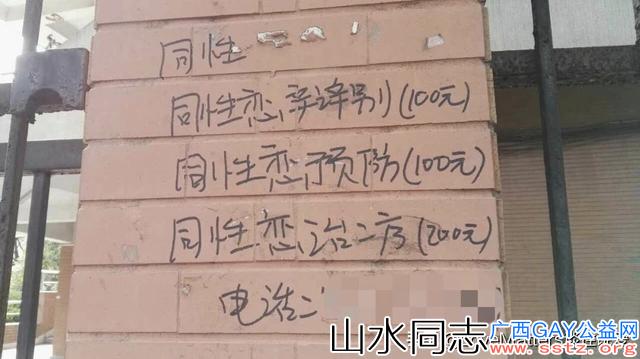 同性
同性恋辨别(100元)
同性恋预防(100元)
同性恋治疗(200元)
电话:
山水同志
广西GAY公益网
www.sstz.org